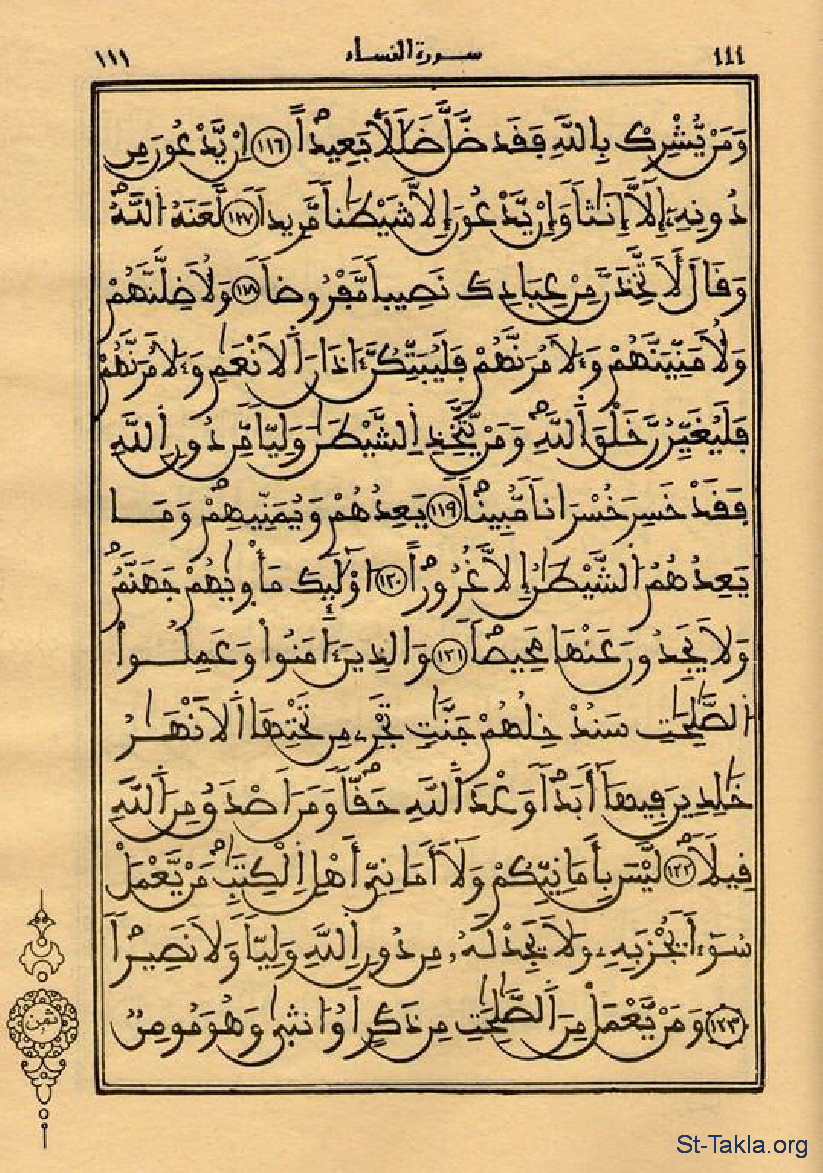 ١١١ سورة النساء ١١١
وَمَنْ يُّشْرِكْ بِاللَّهِ فَقَد ضَّلَّ ضَلَٰلًا بَعِيدًا ١١٦ اِنْ يَّدْعُونَ مِن
دُونِهِۦٓ إِلَّآ إِنَٰثًا وَإِنْ يَّدْعُونَ إِلَّا شَيْطَٰنًا مَّرِيدًا ١١٧ لَّعَنَهُ اللَّهُ
وَقَالَ لَأَتَّخِذَنَّ مِنْ عِبَادِكَ نَصِيبًا مَّفْرُوضًا ١١٨ وَلَأُضِلَّنَّهُمْ
وَلَأُمَنِّيَنَّهُمْ وَءَلَامُرَنَّهُمْ فَلَيُبَتِّكُنَّ ءَاذَانَ اَلَانْعَٰمِ وَءَلَامُرَنَّهُمْ
فَلَيُغَيِّرُنَّ خَلْقَ اَللَّهِ وَمَنْ يَّتَّخِذِ اِلشَّيْطَٰنَ وَلِيًّا مِّن دُونِ اِللَّهِ
فَقَدْ خَسِرَ خُسْرَانًا مُّبِينًا ١١٩ يَعِدُهُمْ وَيُمَنِّيهِمْ وَمَا
يَعِدُهُمُ اُلشَّيْطَٰنُ إِلَّا غُرُورًا ١٢٠ اوْلَٰٓئِكَ مَأْوٜيٰهُمْ جَهَنَّمُ
وَلَا يَجِدُونَ عَنْهَا مَحِيصًا ١٢١ وَالذِينَ ءَامَنُوا وَعَمِلُوا
اُلصَّٰلِحَٰتِ سَنُدْخِلُهُمْ جَنَّٰتٍ تَجْرِے مِن تَحْتِهَا اَلَانْهَٰرُ
خَٰلِدِينَ فِيهَآ أَبَدًا وَعْدَ اَللَّهِ حَقًّا وَمَنَ اَصْدَقُ مِنَ اَللَّهِ
قِيلًا ١٢٢ لَّيْسَ بِأَمَانِيِّكُمْ وَلَآ أَمَانِيِّ أَهْلِ اِلْكِتَٰبِ مَنْ يَّعْمَلْ
سُوٓءًا يُجْزَ بِهِۦ وَلَا يَجِدْ لَهُۥ مِن دُونِ اِللَّهِ وَلِيًّا وَلَا نَصِيرًا
١٢٣ وَمَنْ يَّعْمَلْ مِنَ اَلصَّٰلِحَٰتِ مِن ذَكَرٍ اَوُ انث۪يٰ وَهُوَ مُومِنٌ
ثمن
St-Takla.org